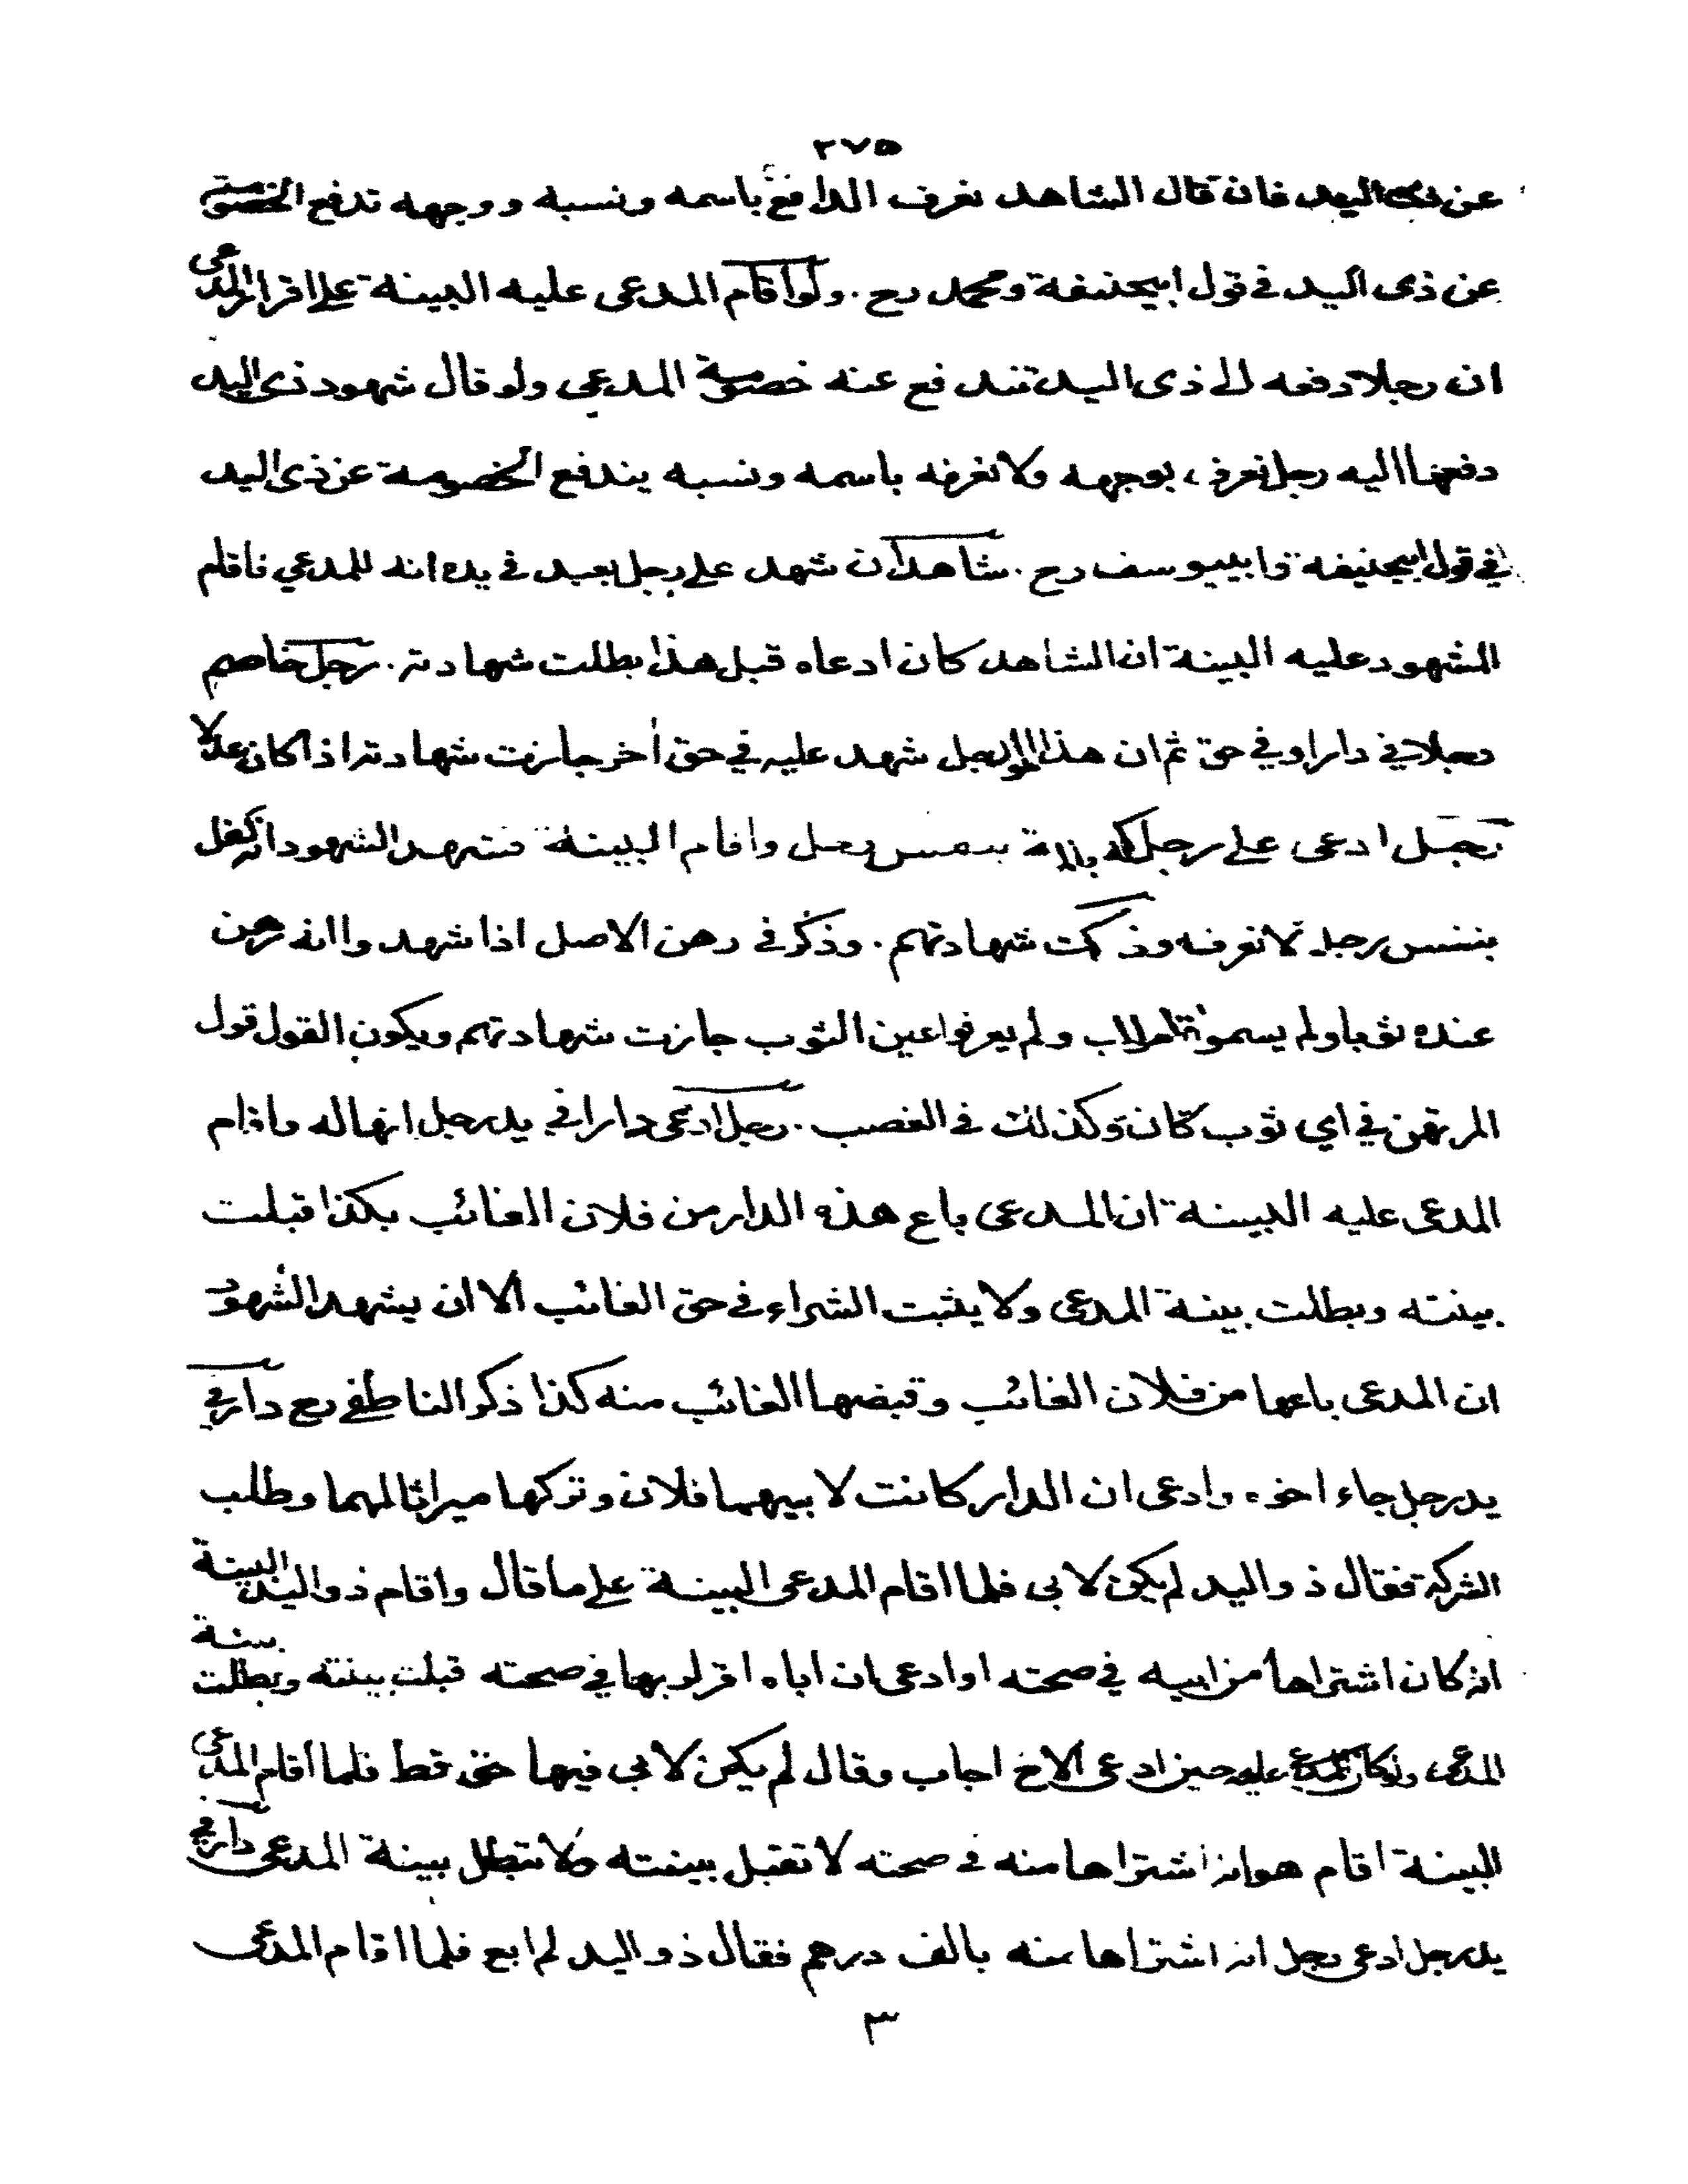 ٢٧٥
عن ذي اليد فان قال الشاهد نعرف الدافع باسمه ونسبه ووجهه تدفع الخصومة
عن ذى اليد فى قول ابيحنيفة ومحمد رح . ولو اقام المدعى عليه البينة على اقرار المدعى
ان رجلا دفعه الى ذى اليد تندفع عنه خصومة المدعى ولو قال شهود ذى اليد
دفعها اليه رجل نعرفه بوجهه ولا نعرفه باسمه ونسبه يندفع الخصومة عن ذى اليد
في قول ابيحنيفة وابييوسف رح . شاهدان شهد على رجل بعبد فى يده انه للمدعي فاقام
المشهود عليه البينة ان الشاهد كان ادعاه قبل هذا بطلت شهادته . رجل خاصم
رجلا في دار او في حق ثم ان هذا الرجل شهد عليه في حق أخر جازت شهادته اذا كان عدلا
رجل ادعى على رجل بنفس رجل واقام البينة فشهد الشهود انه كفل
بنفس رجل لا نعرفه شهادتهم . وذكر فى رهن الاصل اذا شهدوا انه رهن
عنده ثوبا ولم يسموا ولم يعرفوا عين الثوب جازت شهادتهم ويكون القول قول
المرتهن في اي ثوب كان وكذلك فى الغصب . رجل ادعى دارا في يد رجل انها له واقام
المدعى عليه البينة ان المدعى باع هذه الدار من فلان الغائب بكذا قبلت
بينته وبطلت بينة المدعى ولا يثبت الشراء فى حق الغائب الا ان يشهد الشهود
ان المدعى باعها من فلان الغائب وقبضها الغائب منه كذا ذكر الناطفى رح دار في
يد رجل جاء اخوه وادعى ان الدار كانت لابيهما فلان وتركها ميراثا لهما وطلب
الشركة فقال ذو اليد لم يكن لابى فلما اقام المدعى البينة على ما قال واقام ذو اليد البينة
انه كان اشتراها من ابيه في صحته او ادعى ان اباه اقر له بها في صحته قبلت بينته وبطلت بينة
المدعى ولو كان المدعى عليه حين ادعى الاخ اجاب وقال لم يكن لابى فيها حق قط فلما اقام المدعى
البينة اقام هو انه اشتراها منه فى صحته لا تقبل بينته ولا تبطل بينة المدعى دار في
يد رجل ادعى رجل انه اشتراها منه بالف درهم فقال ذو اليد لم ابع فلما اقام المدعى
٣